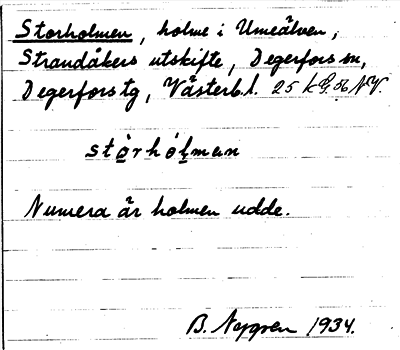 Storholmen, holme i Umeälven,
Strandåkers utskifte, Degerfors sn,
Degerfors tg, Västerb. l. 25 k G. 56 NV.
stọrhóḷman
Numera är holmen udde.
B. Nygren 1934.